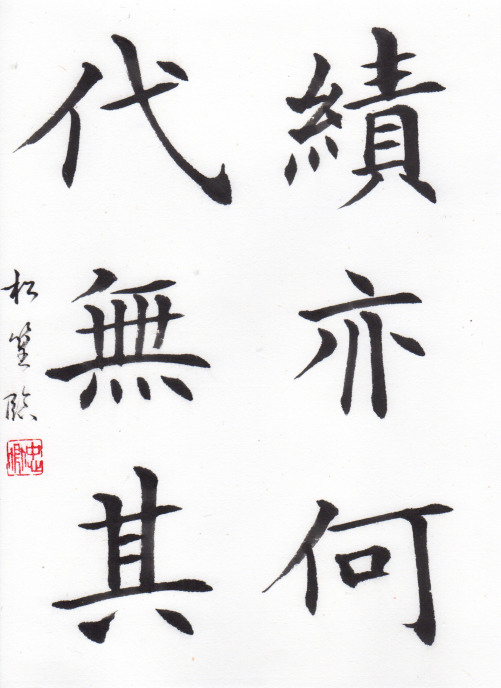 績亦何
代無其
松臨